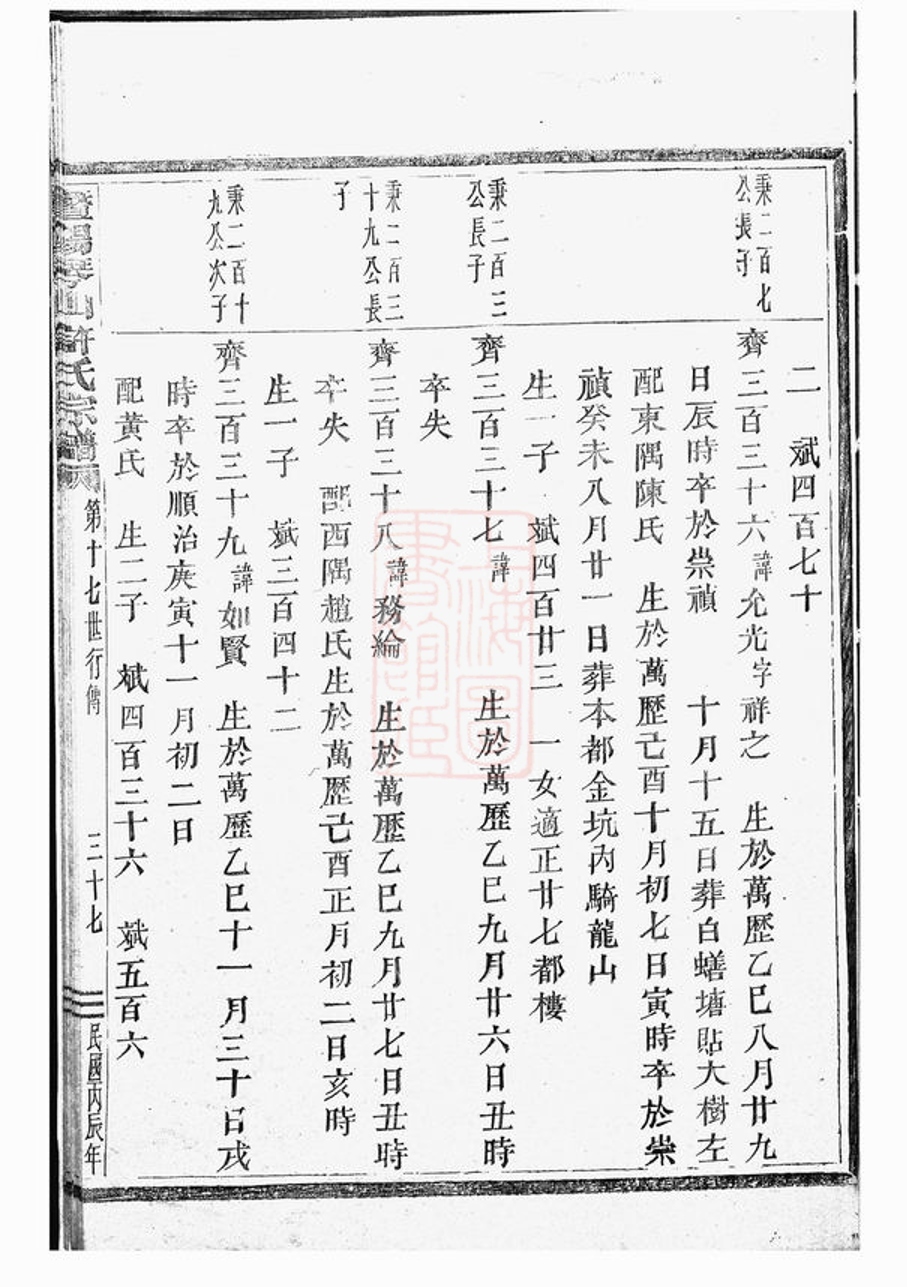 二　斌四百七十
秉二百七
公長子
齊三百三十六諱允光字祥之　生於萬歷乙巳八月廿九
日辰時卒於崇禎　　十月十五日葬白蟮塘貼大樹左
配東隅陳氏　生於萬歷己酉十月初七日寅時卒於崇
禎癸未八月廿一日葬本都金坑內騎龍山
生一子　斌四百廿三　一女適正廿七都樓
秉二百三
公長子
齊三百三十七諱　　　生於萬歷乙巳九月廿六日丑時
卒失
秉二百三
十九公長
子
齊三百三十八諱務綸　生於萬歷乙巳九月廿七日丑時
卒失　配西隅趙氏生於萬歷己酉正月初二日亥時
生一子　斌三百四十二
秉二百十
九公次子
齊三百三十九諱如賢　生於萬歷乙巳十一月三十日戌
時卒於順治庚寅十一月初二日
配黃氏　生二子　斌四百三十六　斌五百六
暨陽琴山許氏宗譜　第十七世行傳　三十七　民國丙辰年
上海圖
書館藏